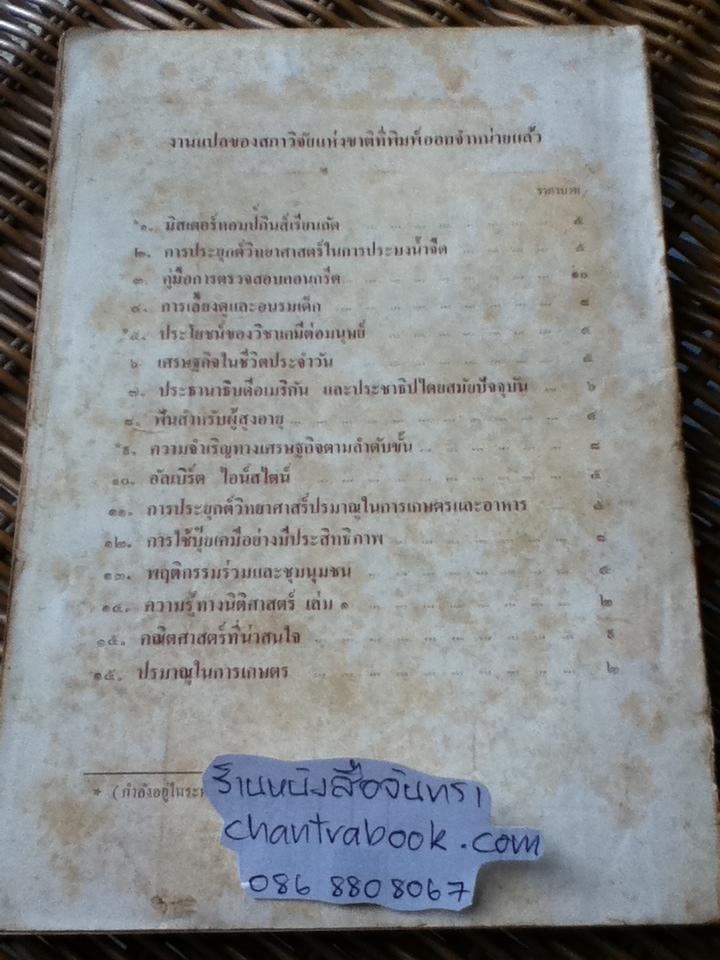 งานแปลของสภาวิจัยแห่งชาติที่พิมพ์ออกจำหน่ายแล้ว
ราคาบาท
*๑. มิสเตอร์ทอมปกินส์เรียนลัด ๕
๒. การประยุกต์วิทยาศาสตร์ในการประมงน้ำจืด ๕
๓. คู่มือการตรวจสอบคอนกรีต ๑๐
๔. การเลี้ยงดูและอบรมเด็ก ๘
*๕. ประโยชน์ของวิชาเคมีต่อมนุษย์
๖ เศรษฐกิจในชีวิตประจำวัน ๕
๗. ประธานาธิบดีอเมริกัน และประชาธิปไตยสมัยปัจจุบัน ๖
๘. ฟันสำหรับผู้สูงอายุ
*๙. ความจำเริญทางเศรษฐกิจตามลำดับขั้น ๘
๑๐. อัลเบิร์ต ไอน์สไตน์ ๕
๑๑. การประยุกต์วิทยาศาสตร์ปรมาณูในการเกษตรและอาหาร
๑๒. การใช้ปุ๋ยเคมีอย่างมีประสิทธิภาพ ๘
๑๓. พฤติกรรมร่วมและชุมนุมชน
๑๔. ความรู้ทางนิติศาสตร์ เล่ม ๑ ๒
๑๕. คณิตศาสตร์ที่น่าสนใจ ๙
๑๕. ปรมาณูในการเกษตร ๒
* (กำลังอยู่ในระห
ร้านหนังสือจันทรา
chantrabook.com
086 8808067